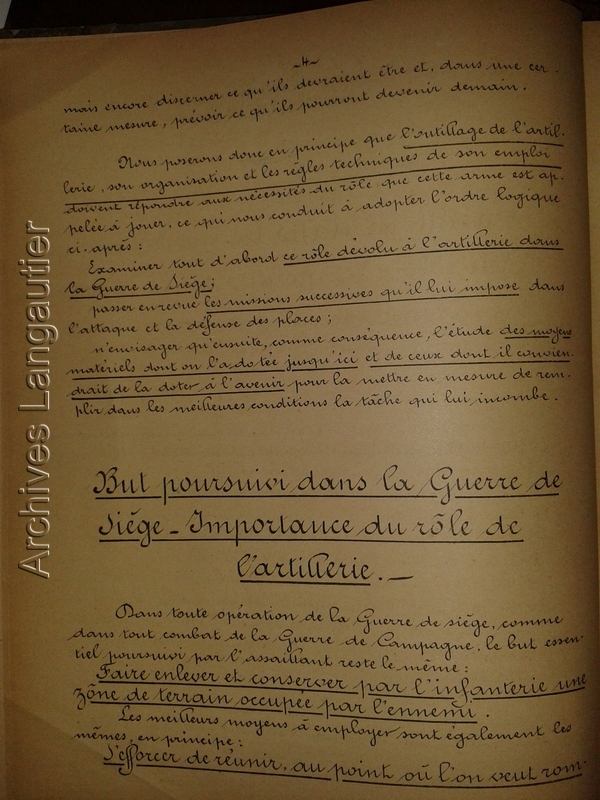 -4-
mais encore discerner ce qu'ils devraient être et, dans une cer-
taine mesure, prévoir ce qu'ils pourront devenir demain.
Nous poserons donc en principe que l'outillage de l'artil-
lerie, son organisation et les règles techniques de son emploi
doivent répondre aux nécessités du rôle que cette arme est ap-
pelée à jouer, ce qui nous conduit à adopter l'ordre logique
ci-après :
Examiner tout d'abord ce rôle dévolu à l'artillerie dans
la Guerre de Siége ;
passer en revue les missions successives qu'il lui impose dans
l'attaque et la défense des places ;
n'envisager qu'ensuite, comme conséquence, l'étude des moyens
matériels dont on l'a dotée jusqu'ici et de ceux dont il convien-
drait de la doter à l'avenir pour la mettre en mesure de rem-
plir dans les meilleures conditions la tâche qui lui incombe.
But poursuivi dans la Guerre de
Siége - Importance du rôle de
l'artillerie. -
Dans toute opération de la Guerre de siége, comme
dans tout combat de la Guerre de Campagne, le but essen-
tiel poursuivi par l'assaillant reste le même :
Faire enlever et conserver par l'infanterie une
zône de terrain occupée par l'ennemi.
Les meilleurs moyens à employer sont également les
mêmes, en principe :
S'efforcer de réunir, au point où l'on veut rom-
Archives Langautier